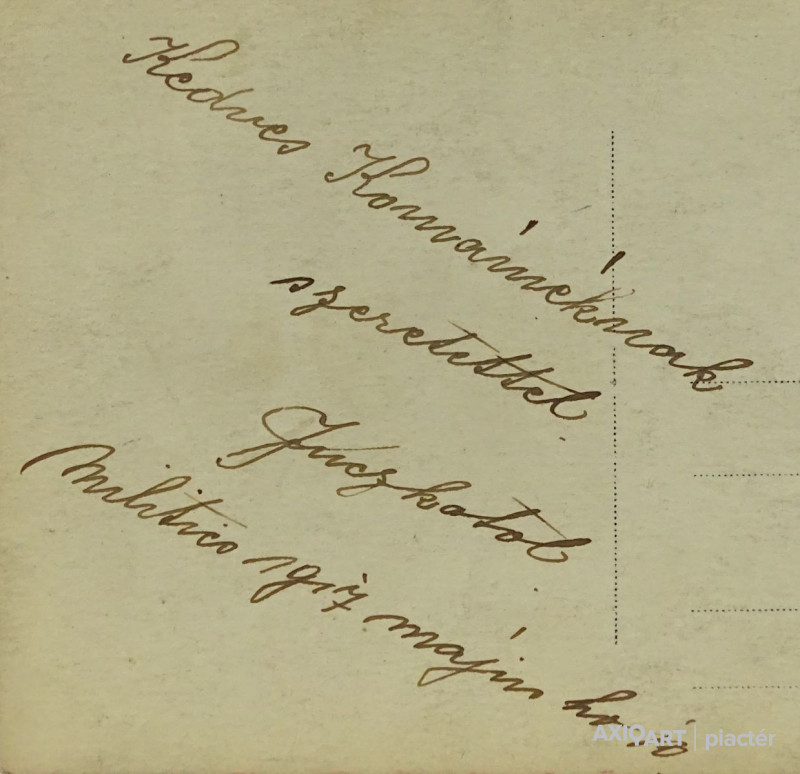 Kedves Komáméknak
szeretettel
Juczkatol
Militics 1917 május hó
AXIOART | piactér